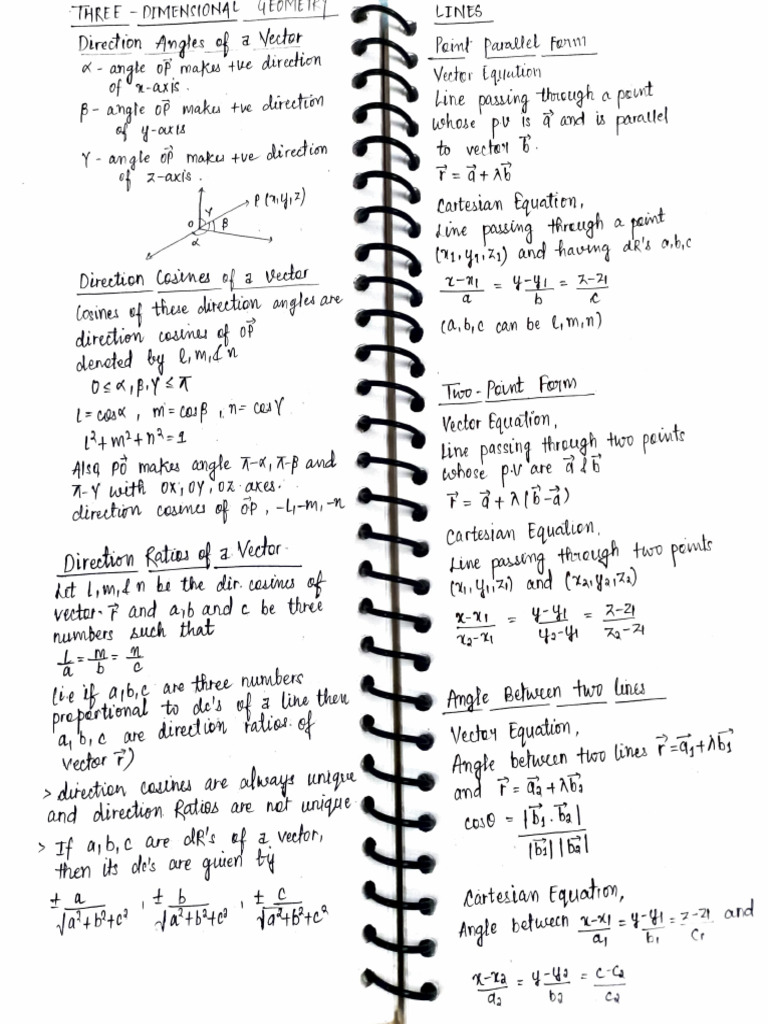 THREE - DIMENSIONAL GEOMETRY
Direction Angles of a Vector
α - angle OP⃗ makes +ve direction
of x-axis.
β - angle OP⃗ makes +ve direction
of y-axis
γ - angle OP⃗ makes +ve direction
of z-axis.
P(x,y,z)
γ
O
β
α
Direction Cosines of a Vector
Cosines of these direction angles are
direction cosines of OP⃗
denoted by l, m, & n
0 ≤ α, β, γ ≤ π
l = cosα , m = cosβ , n = cosγ
l² + m² + n² = 1
Also PO⃗ makes angle π-α, π-β and
π-γ with OX, OY, OZ axes.
direction cosines of OP⃗, -l, -m, -n
Direction Ratios of a Vector
Let l, m, & n be the dir. cosines of
vector r⃗ and a, b and c be three
numbers such that
l/a = m/b = n/c
(i.e if a, b, c are three numbers
proportional to dc's of a line then
a, b, c are direction ratios of
vector r⃗)
> direction cosines are always unique
and direction Ratios are not unique
> If a, b, c are dR's of a vector,
then its dc's are given by
± a/√(a²+b²+c²) , ± b/√(a²+b²+c²) , ± c/√(a²+b²+c²)
LINES
Point Parallel Form
Vector Equation
Line passing through a point
whose p.v is a⃗ and is parallel
to vector b⃗.
r⃗ = a⃗ + λb⃗
Cartesian Equation,
Line passing through a point
(x₁, y₁, z₁) and having dR's a, b, c
(x-x₁)/a = (y-y₁)/b = (z-z₁)/c
(a, b, c can be l, m, n)
Two-Point Form
Vector Equation,
Line passing through two points
whose p.v are a⃗ & b⃗
r⃗ = a⃗ + λ(b⃗-a⃗)
Cartesian Equation,
Line passing through two points
(x₁, y₁, z₁) and (x₂, y₂, z₂)
(x-x₁)/(x₂-x₁) = (y-y₁)/(y₂-y₁) = (z-z₁)/(z₂-z₁)
Angle Between two lines
Vector Equation,
Angle between two lines r⃗ = a⃗₁+λb⃗₁
and r⃗ = a⃗₂+λb⃗₂
cosθ = |b⃗₁ . b⃗₂| / |b⃗₁| |b⃗₂|
Cartesian Equation,
Angle between (x-x₁)/a₁ = (y-y₁)/b₁ = (z-z₁)/c₁ and
(x-x₂)/a₂ = (y-y₂)/b₂ = (c-c₂)/c₂